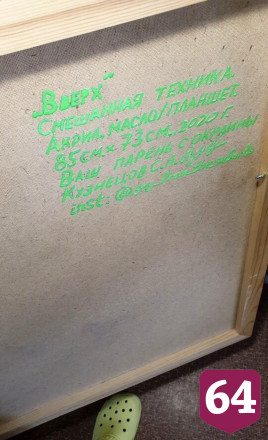 "Вверх"
Смешанная техника.
Акрил, масло/планшет.
85см. х 73см., 2020 г.
Ваш парень с окраины
Кузнецов С.А.
inst:
64